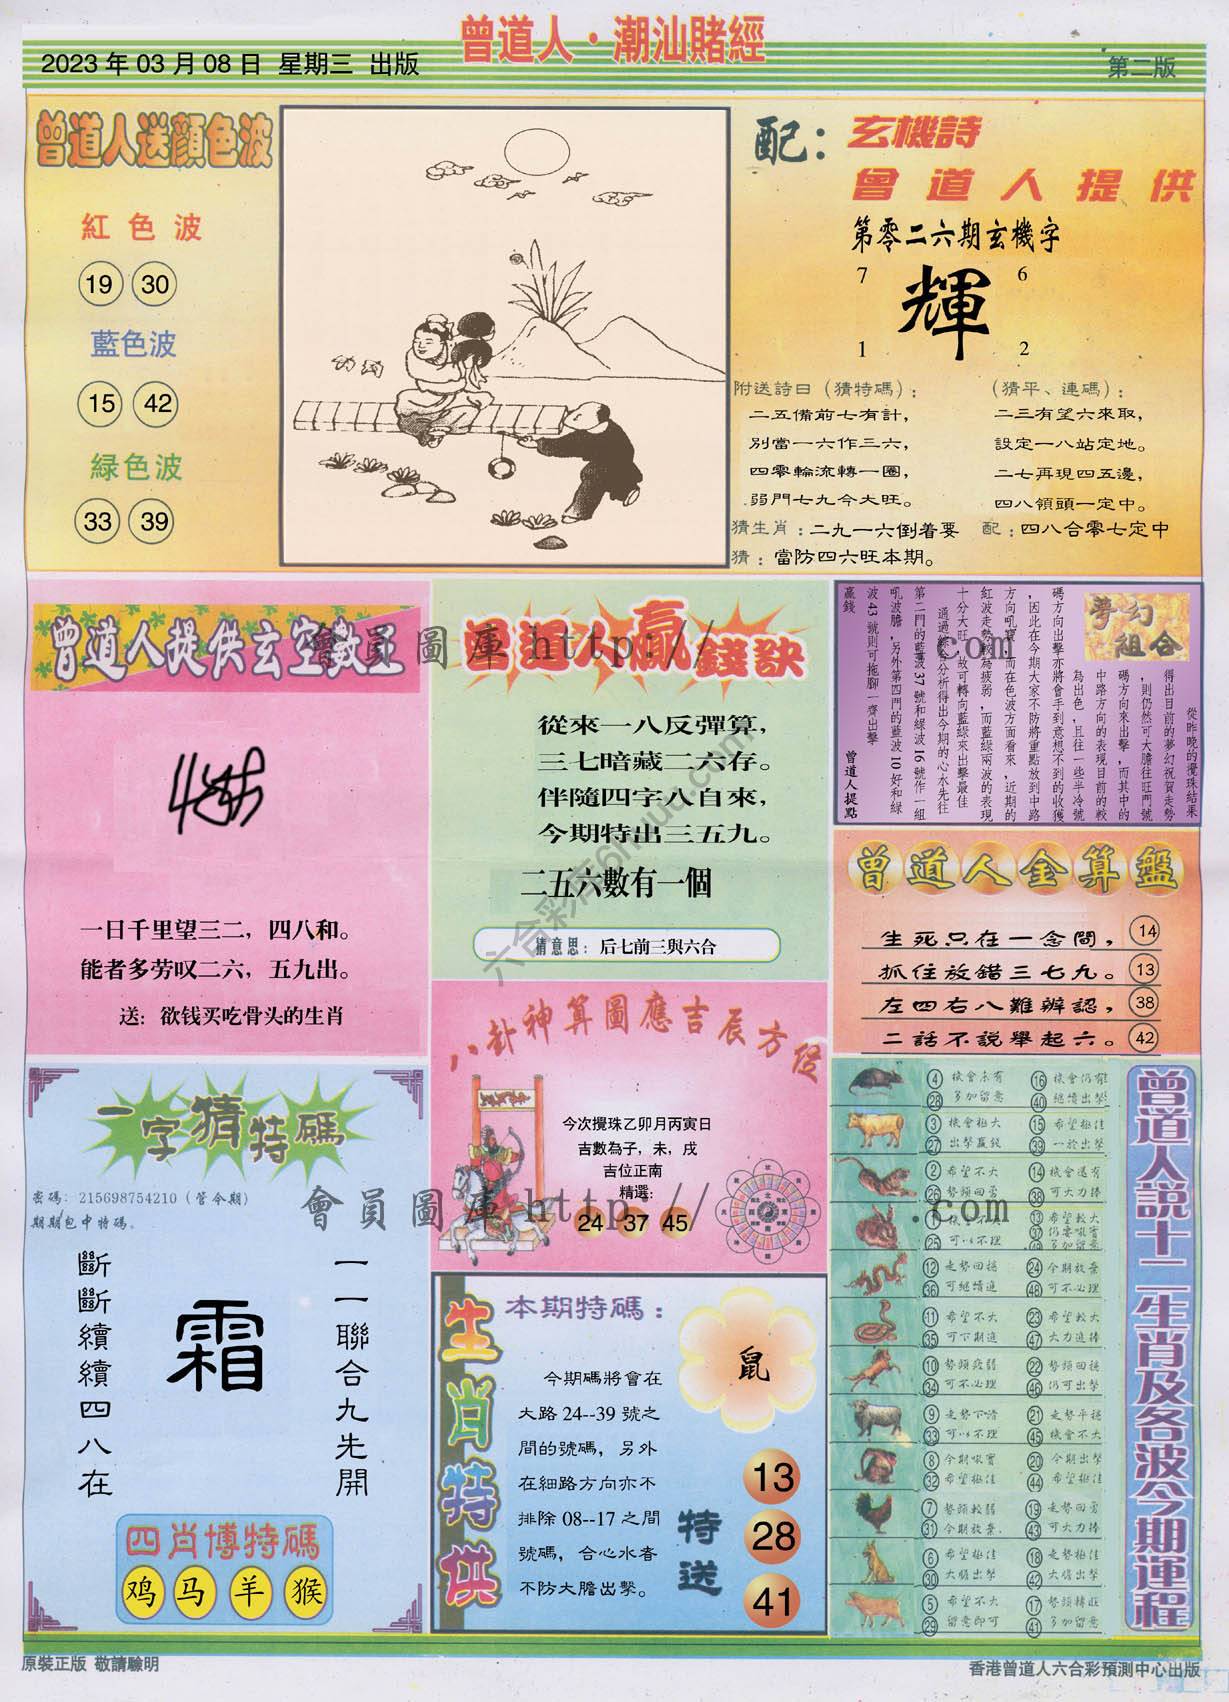 曾道人·潮汕賭經
2023 年 03 月 08 日 星期三 出版
第二版
曾道人送顏色波
紅色波
19 30
藍色波
15 42
綠色波
33 39
配：玄機詩
曾道人提供
第零二六期玄機字
7 6
輝
1 2
附送詩曰（猜特碼）：
二五備前七有計，
別當一六作三六，
四零輪流轉一圈，
弱門七九今大旺。
（猜平、連碼）：
二三有望六來取，
設定一八站定地。
二七再現四五邊，
四八領頭一定中。
猜生肖：二九一六倒着要 配：四八合零七定中
猜：當防四六旺本期。
曾道人提供玄空數王
一日千里望三二，四八和。
能者多劳叹二六，五九出。
送：欲钱买吃骨头的生肖
曾道人贏錢訣
從來一八反彈算，
三七暗藏二六存。
伴隨四字八自來，
今期特出三五九。
二五六數有一個
猜意思：后七前三與六合
夢幻組合
從昨晚的攪珠結果
得出目前的夢幻祝賀走勢
，則仍然可大膽往旺門號
碼方向來出擊，而其中的
中路方向的表現目前的較
為出色，且往一些半冷號
碼方向出擊亦將會手到意想不到的收獲
，因此在今期大家不防將重點放到中路
方向吼寶，而在色波方面看來，近期的
紅波走勢較為疲弱，而藍綠兩波的表現
十分大旺，故可轉向藍綠來出擊最佳
通過綜合分析得出今期的心水先往
第二門的藍波 37 號和綠波 16 號作一組
吼波膽，另外第四門的藍波 10 好和綠
波 43 號則可拖腳一齊出擊
贏錢
曾道人提點
曾道人金算盤
生死只在一念間， 14
抓住放錯三七九。 13
左四右八難辨認， 38
二話不說舉起六。 42
八卦神算圖應吉辰方位
今次攪珠乙卯月丙寅日
吉數為子，未，戌
吉位正南
精選:
24 37 45
一字猜特碼
密碼: 215698754210 (管今期)
期期包中特碼。
一一聯合九先開
霜
斷斷續續四八在
四肖博特碼
鸡 马 羊 猴
生肖特供
本期特碼：
鼠
今期碼將會在
大路 24--39 號之
間的號碼，另外
在細路方向亦不
排除 08--17 之間
號碼，合心水者
不防大膽出擊。
特送
13
28
41
曾道人說十二生肖及各波今期運程
4 28 機會未有 多加留意 16 40 機會仍有 繼續出擊
3 27 機會極大 出擊贏錢 15 39 希望極佳 一於出擊
2 26 希望不大 勢頭回勇 14 38 機會還有 可大力捧
1 25 機會不大 可以不理 13 37 49 希望較大 仍要吼實 多加留意
12 36 走勢回穩 可繼續進 24 48 今期放棄 可不必理
11 35 希望不大 可下期進 23 47 希望較大 大力進捧
10 34 勢頭疲弱 可不必理 22 46 勢頭回穩 仍可出擊
9 33 走勢下滑 可以不理 21 45 走勢平穩 機會不大
8 32 今期吼實 希望極佳 20 44 今期出擊 希望極佳
7 31 勢頭較弱 今期放棄 19 43 走勢回勇 可大力捧
6 30 希望極佳 大膽出擊 18 42 走勢極佳 大膽出擊
5 29 希望不大 留意即可 17 41 勢頭轉旺 多加留意
會員圖庫 http://
.com
會員圖庫 http://
.com
六合彩库6huu.com
原裝正版 敬請驗明
香港曾道人六合彩預測中心出版